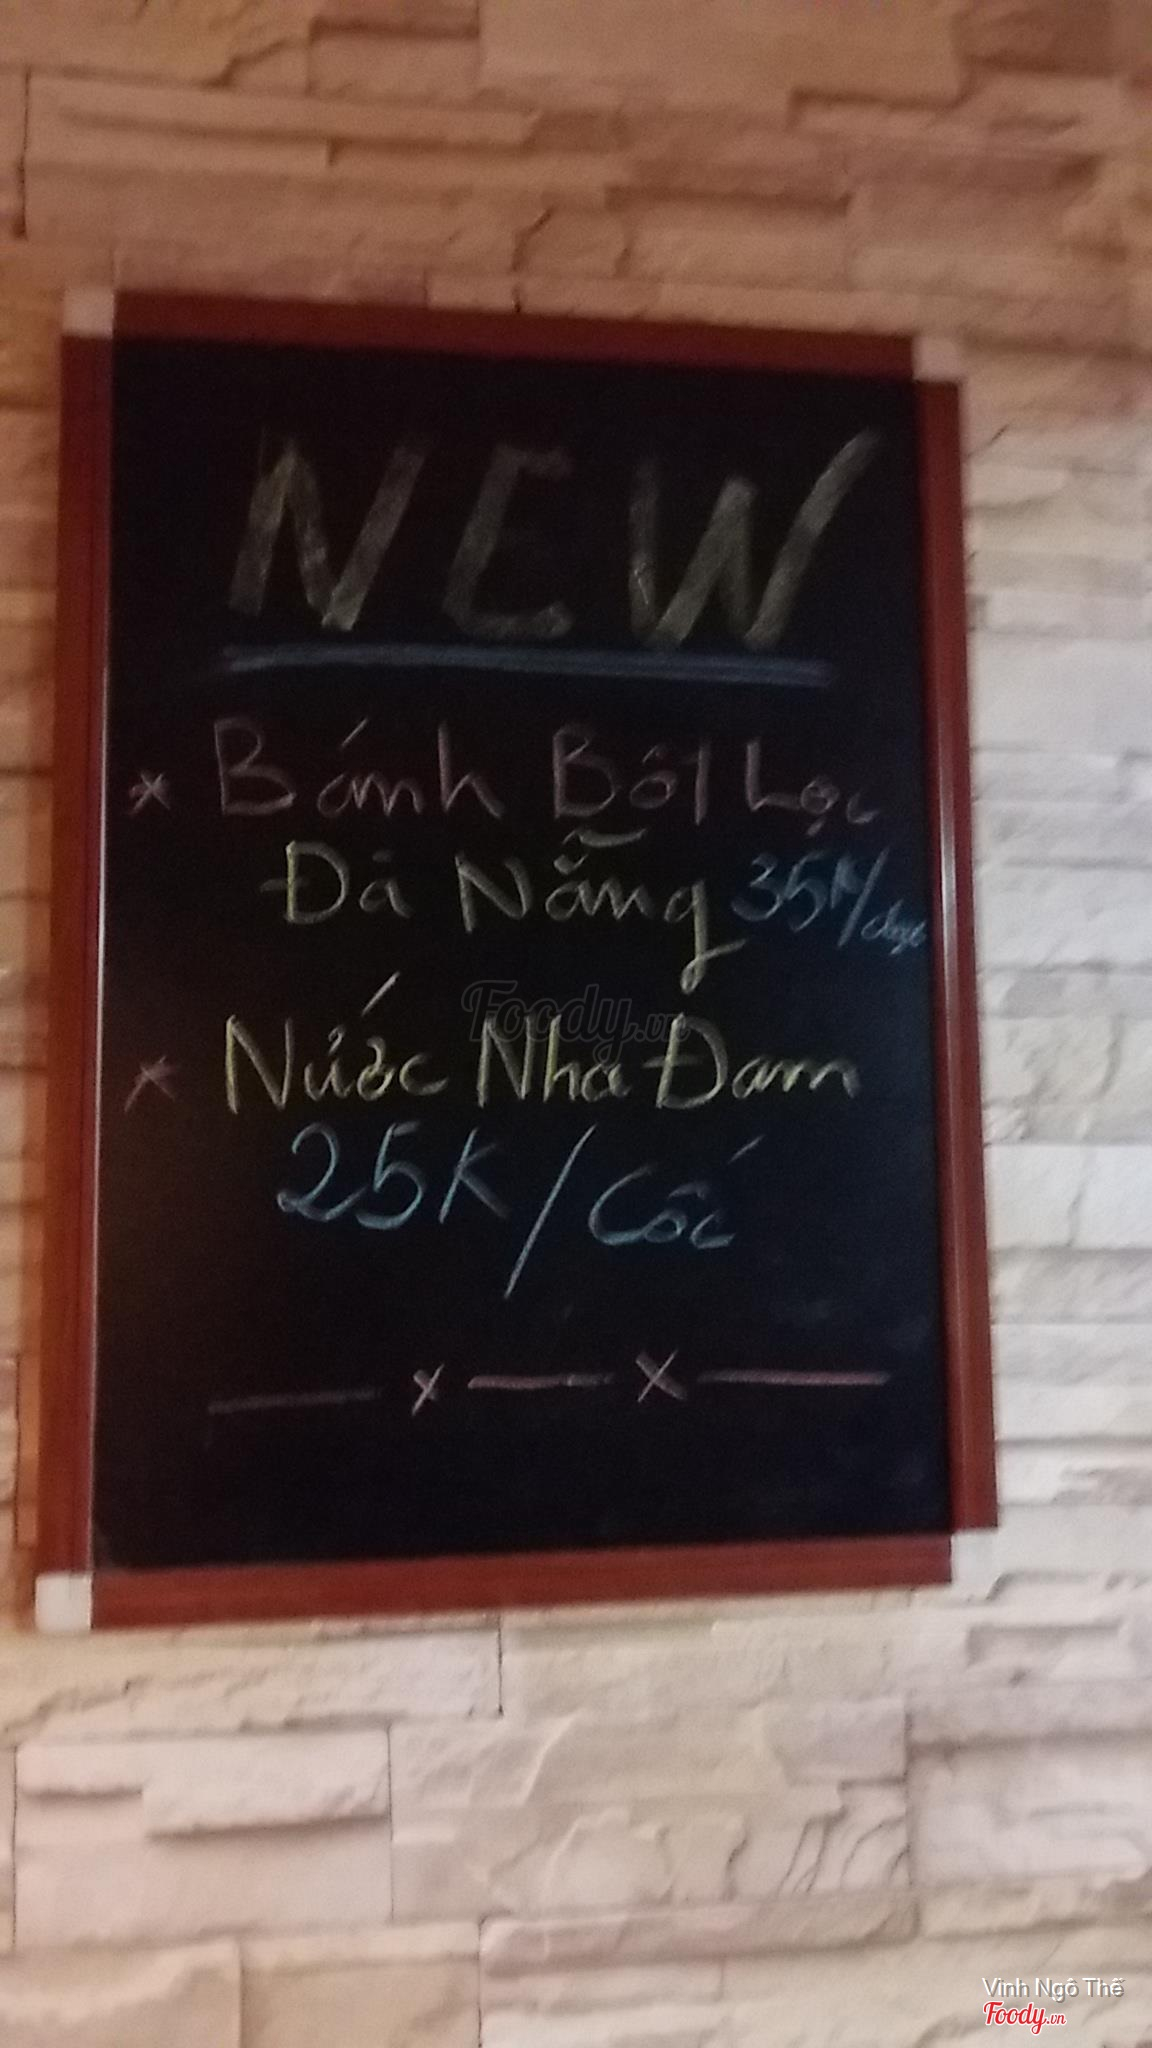 NEW
* Bánh Bột Lọc
Đà Nẵng 35K/
Foody.vn
* Nước Nha Đam
25K/Cốc
x x
Vinh Ngô Thế
Foody.vn